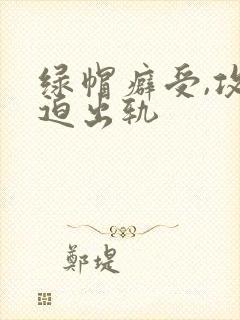 绿帽癖受,攻
迫出轨
鄭堤